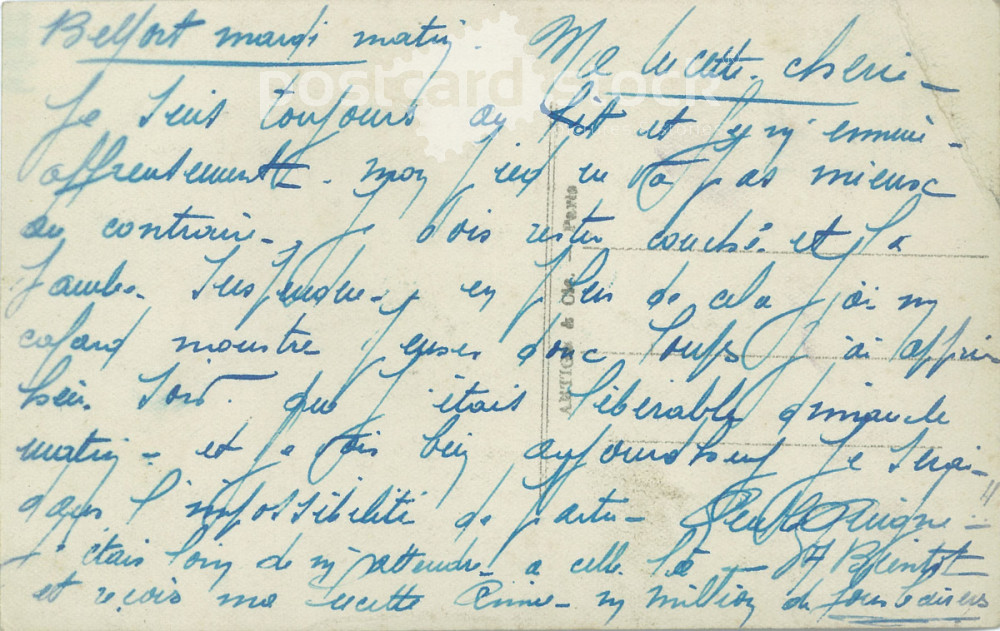 Belfort mardi matin. Ma Lucette chérie –
Je suis toujours au lit et je m'ennuie
affreusement. mon pied ne va pas mieux
au contraire, je dois rester couché et la
jambe suspendue, en plus de cela j'ai un
cafard monstre penses donc loupe j'ai appris
hier soir que j'étais libérable dimanche
matin – et je vois bien aujourd'hui je serai
dans l'impossibilité de partir –
j'étais loin de m'attendre à celle là – A Bientôt
et reçois ma Lucette un million de
postcard stock
ARTIGE & Cie. – Paris